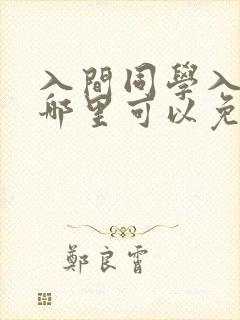 入間同學入
哪里可以免
鄭良霄